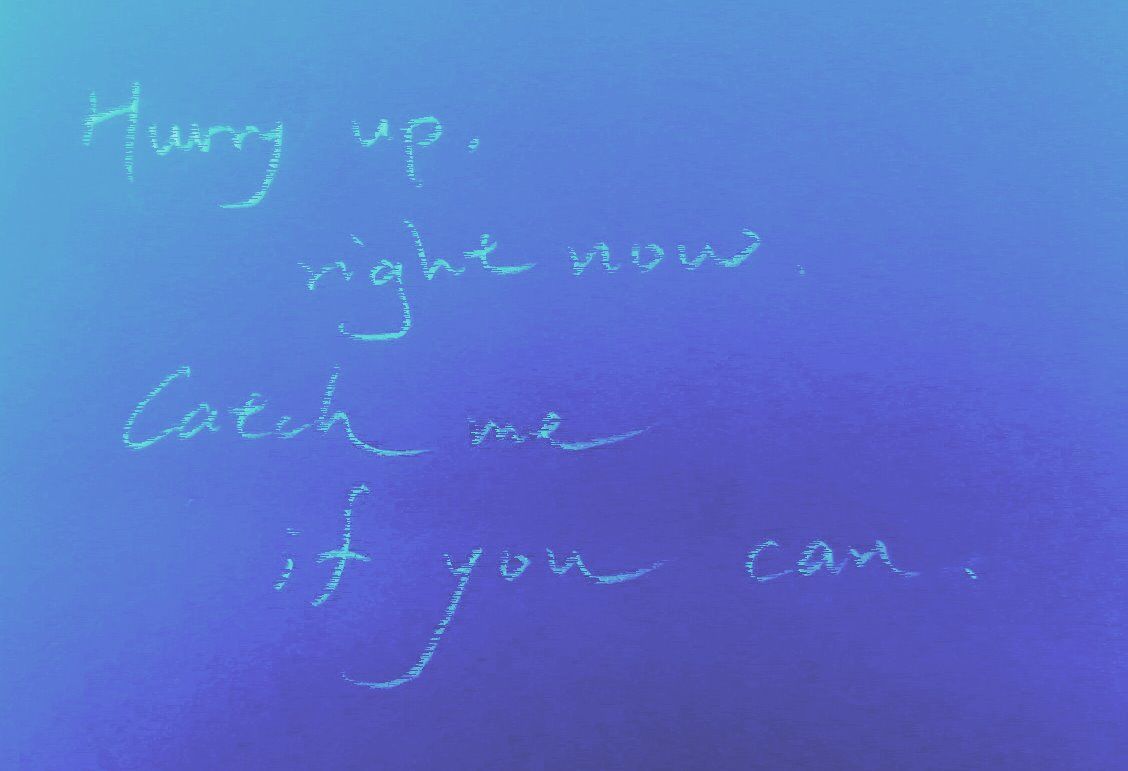 Hurry up.
right now.
Catch me
if you can.